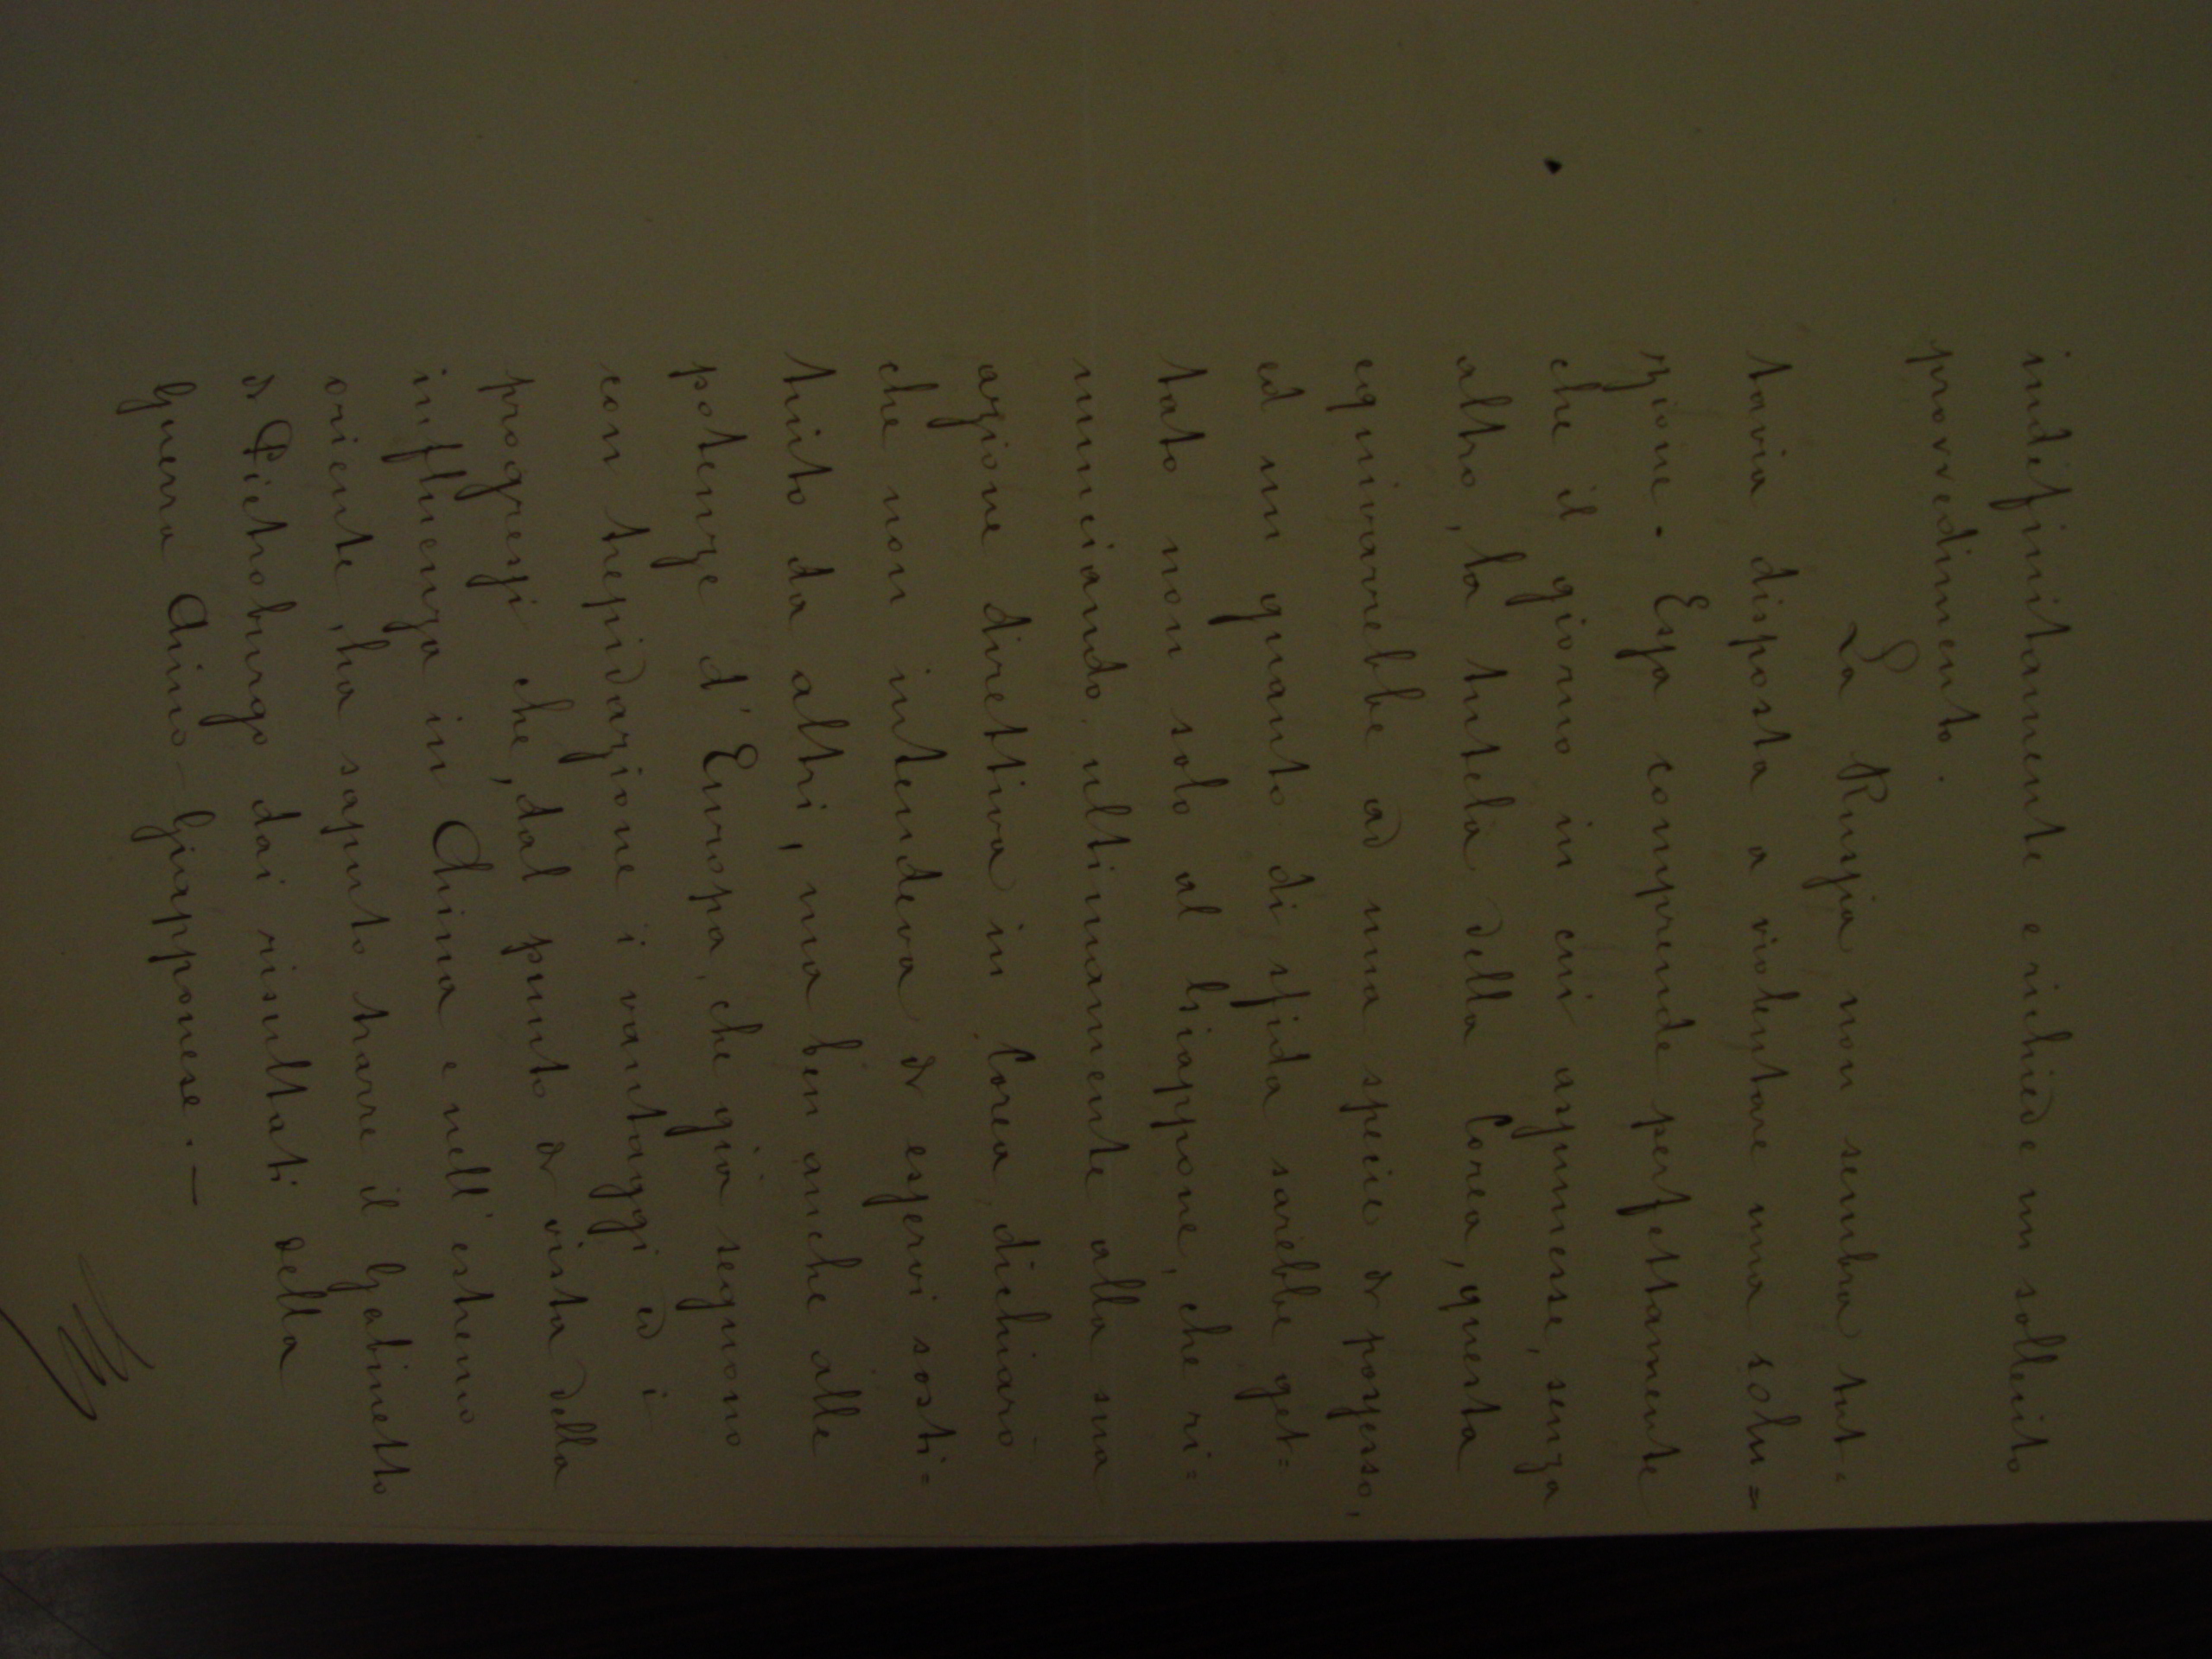 indefinitamente e richiede un sollecito
provvedimento.
La Russia non sembra tut-
tavia disposta a violentare una solu=
zione. Essa comprende perfettamente
che il giorno in cui assumesse, senza
altro, la tutela della Corea, questa
equivarrebbe ad una specie di possesso,
ed un quanto di sfida sarebbe get=
tato non solo al Giappone, che ri=
nunciando ultimamente alla sua
azione direttiva in Corea, dichiarò
che non intendeva di esservi sosti=
tuito da altri, ma ben anche alle
potenze d'Europa, che già seguono
con trepidazione i vantaggi ed i
progressi che, dal punto di vista della
influenza in China e nell'estremo
oriente, ha saputo trarre il Gabinetto
di Pietroburgo dai risultati della
guerra Chino-Giapponese. —